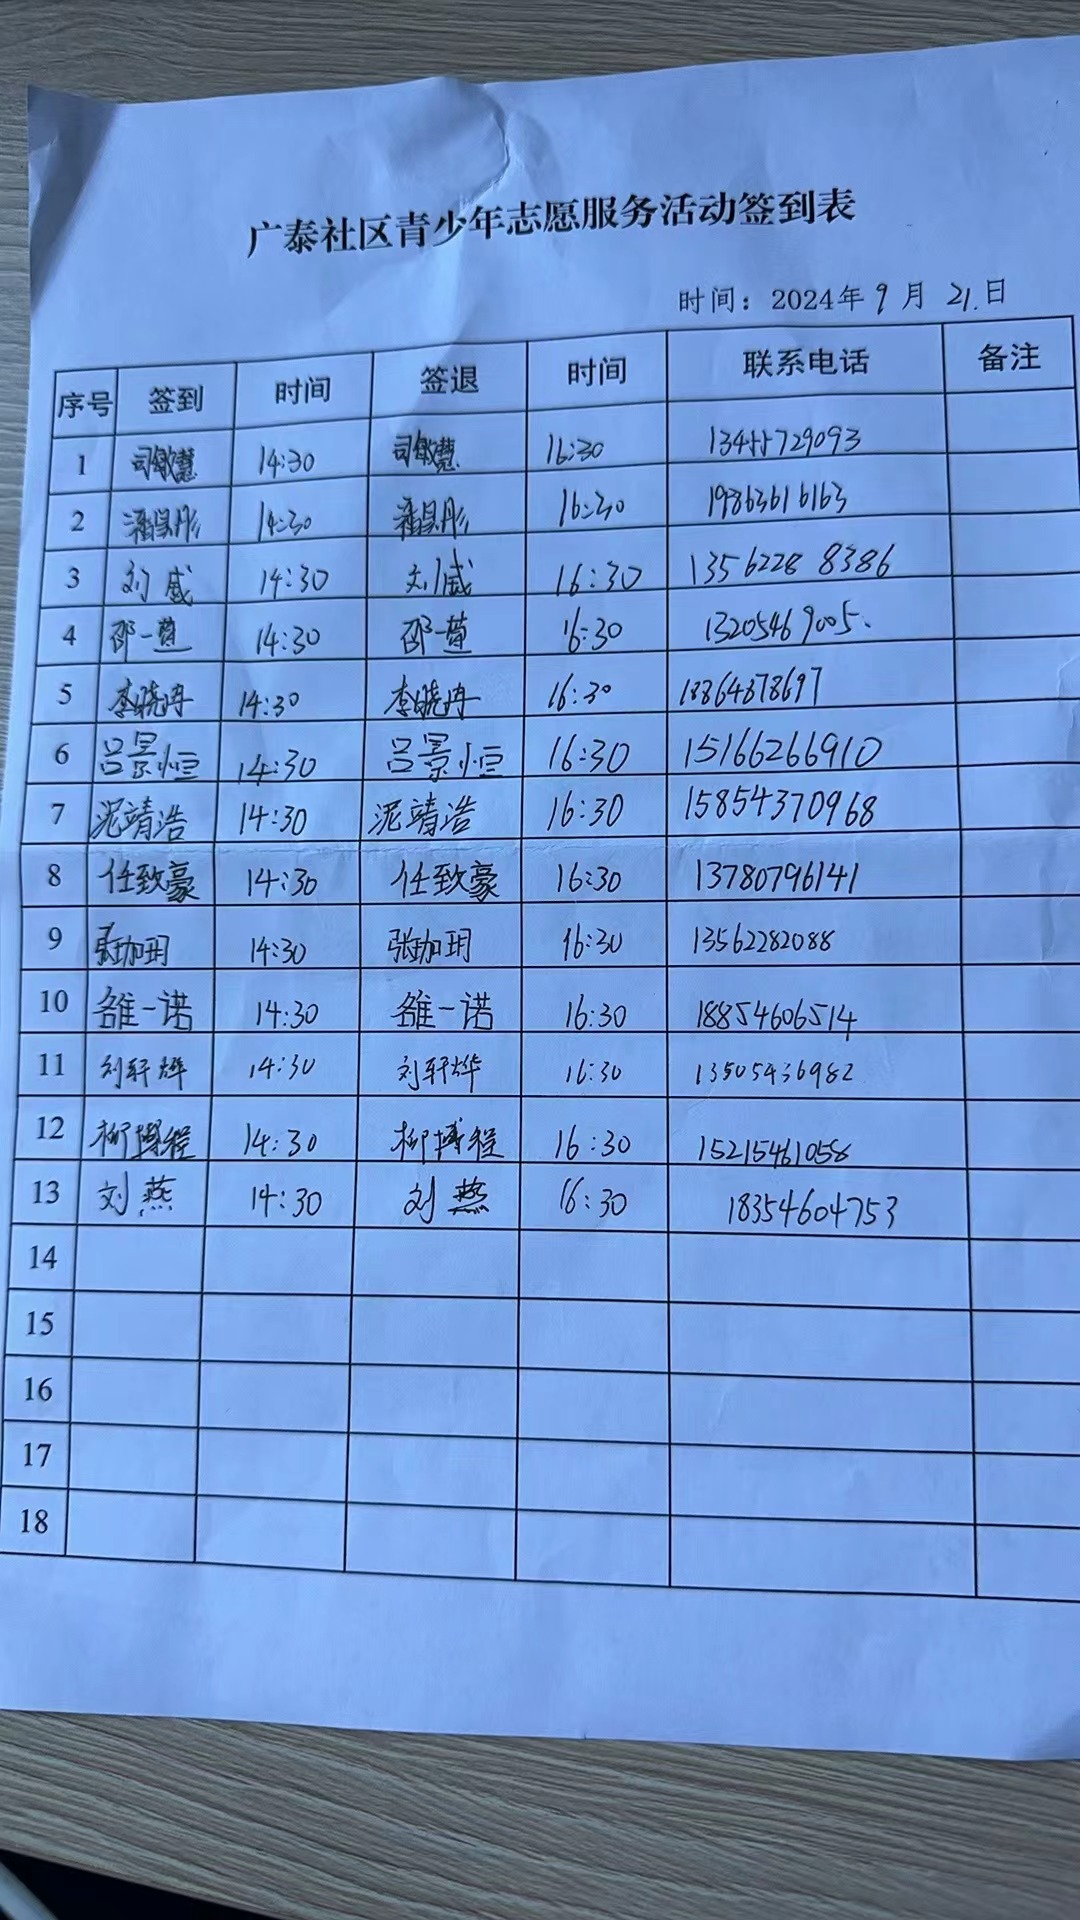 广泰社区青少年志愿服务活动签到表
时间：2024年9月21.日
序号 签到 时间 签退 时间 联系电话 备注
1 司敏慧 14:30 司敏慧 16:30 13455729093
2 潘昊彤 14:30 潘昊彤 16:30 19863616163
3 刘威 14:30 刘威 16:30 13562288386
4 邵一萱 14:30 邵一萱 16:30 13205469005.
5 李晓冉 14:30 李晓冉 16:30 18864378697
6 吕景恒 14:30 吕景恒 16:30 15166266910
7 泥靖浩 14:30 泥靖浩 16:30 15854370968
8 任致豪 14:30 任致豪 16:30 13780796141
9 张珈玥 14:30 张珈玥 16:30 13562282088
10 一诺 14:30 一诺 16:30 18854606514
11 刘轩烨 14:30 刘轩烨 16:30 13505436982
12 柳博程 14:30 柳博程 16:30 15215461058
13 刘燕 14:30 刘燕 16:30 18354604753
14
15
16
17
18